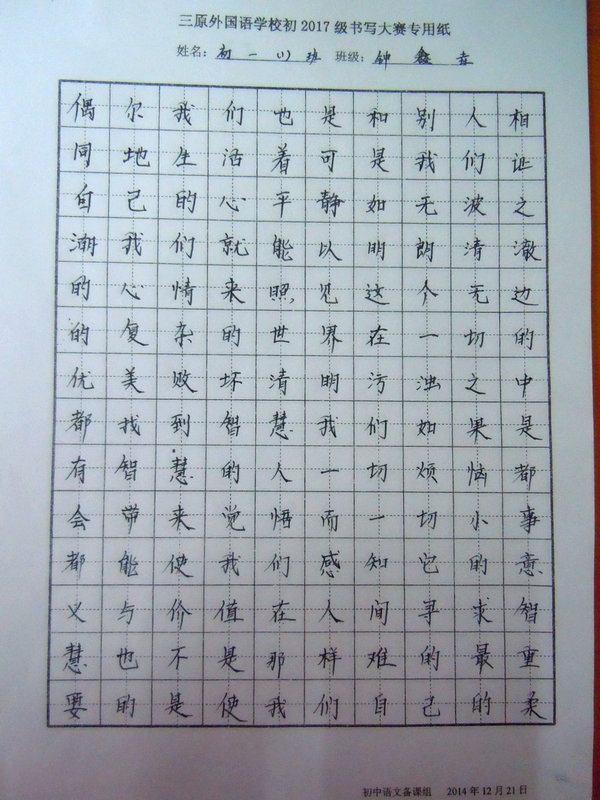 三原外国语学校初2017级书写大赛专用纸
姓名：初一(1)班 班级：钟鑫垚
偶尔我们也是和别人相
同地生活着可是我们证
自己的心平静如无波之
潮我们就能以明朗清澈
的心情来照见这个无边
的复杂的世界在一切的
优美败坏清明污浊之中
都找到智慧我们如果是
有智慧的人一切烦恼都
会带来觉悟而一切小事
都能使我们感知它的意
义与价值在人间寻求智
慧也不是那样难的最重
要的是使我们自己的柔
初中语文备课组 2014年12月21日